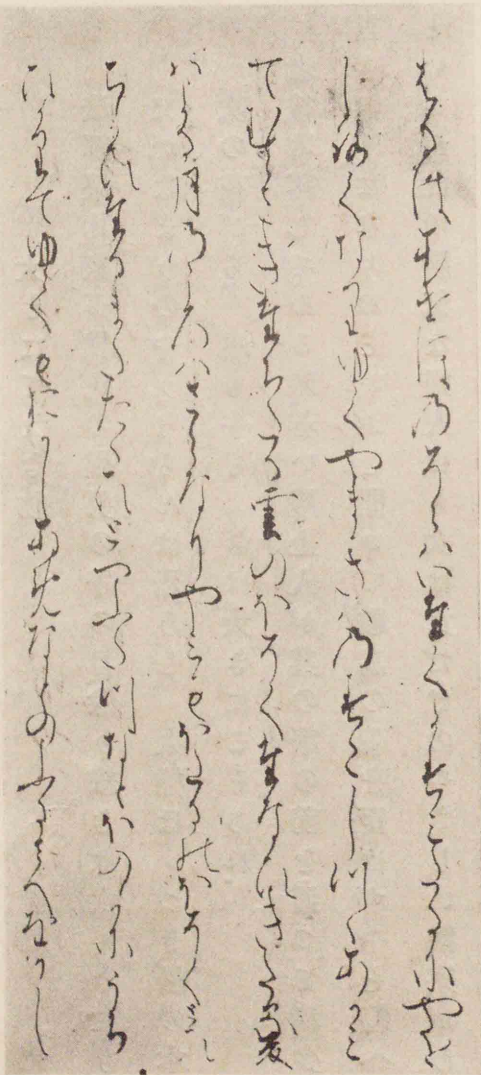 はるはあけほのそらはいたくかすみたるにやう〳〵
しろくなりゆくやまきはのすこしつゝあかみ
てむらさきたちたる雲のほそくたなひきたる夏
はよる月のころはさらなりやみもほたるのほそくとひ
ちかひたるまたたゝひとつふたつなとほのかにうち
ひかりてゆくもをかしあめなとのふるさへをかし